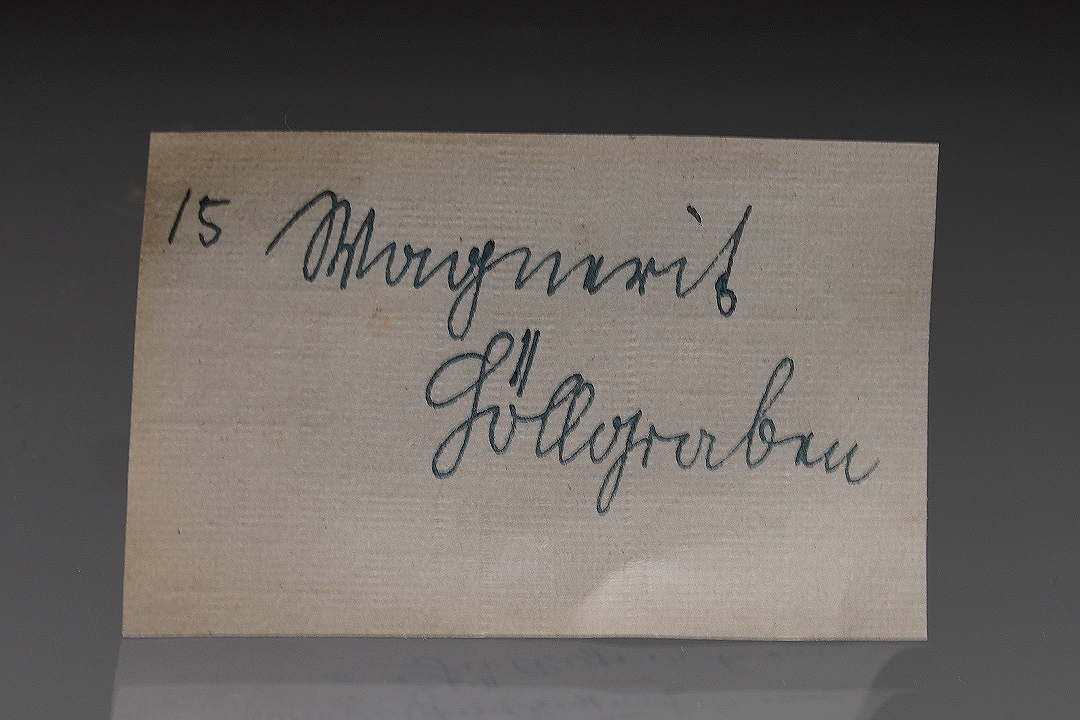 15 Wagnerit
Höllgraben